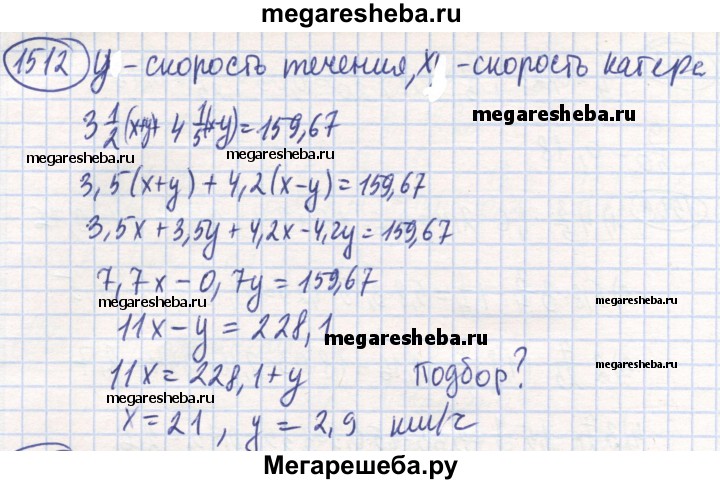 megaresheba.ru
1512 y - скорость течения, x - скорость катера
megaresheba.ru
3 1/2 (x+y) + 4 1/5 (x-y) = 159,67
megaresheba.ru
megaresheba.ru
3,5(x+y) + 4,2(x-y) = 159,67
3,5x + 3,5y + 4,2x - 4,2y = 159,67
7,7x - 0,7y = 159,67
megaresheba.ru
megaresheba.ru
11x - y = 228,1
megaresheba.ru
11x = 228,1 + y Подбор?
megaresheba.ru
x = 21, y = 2,9 км/ч
Мегарешеба.ру